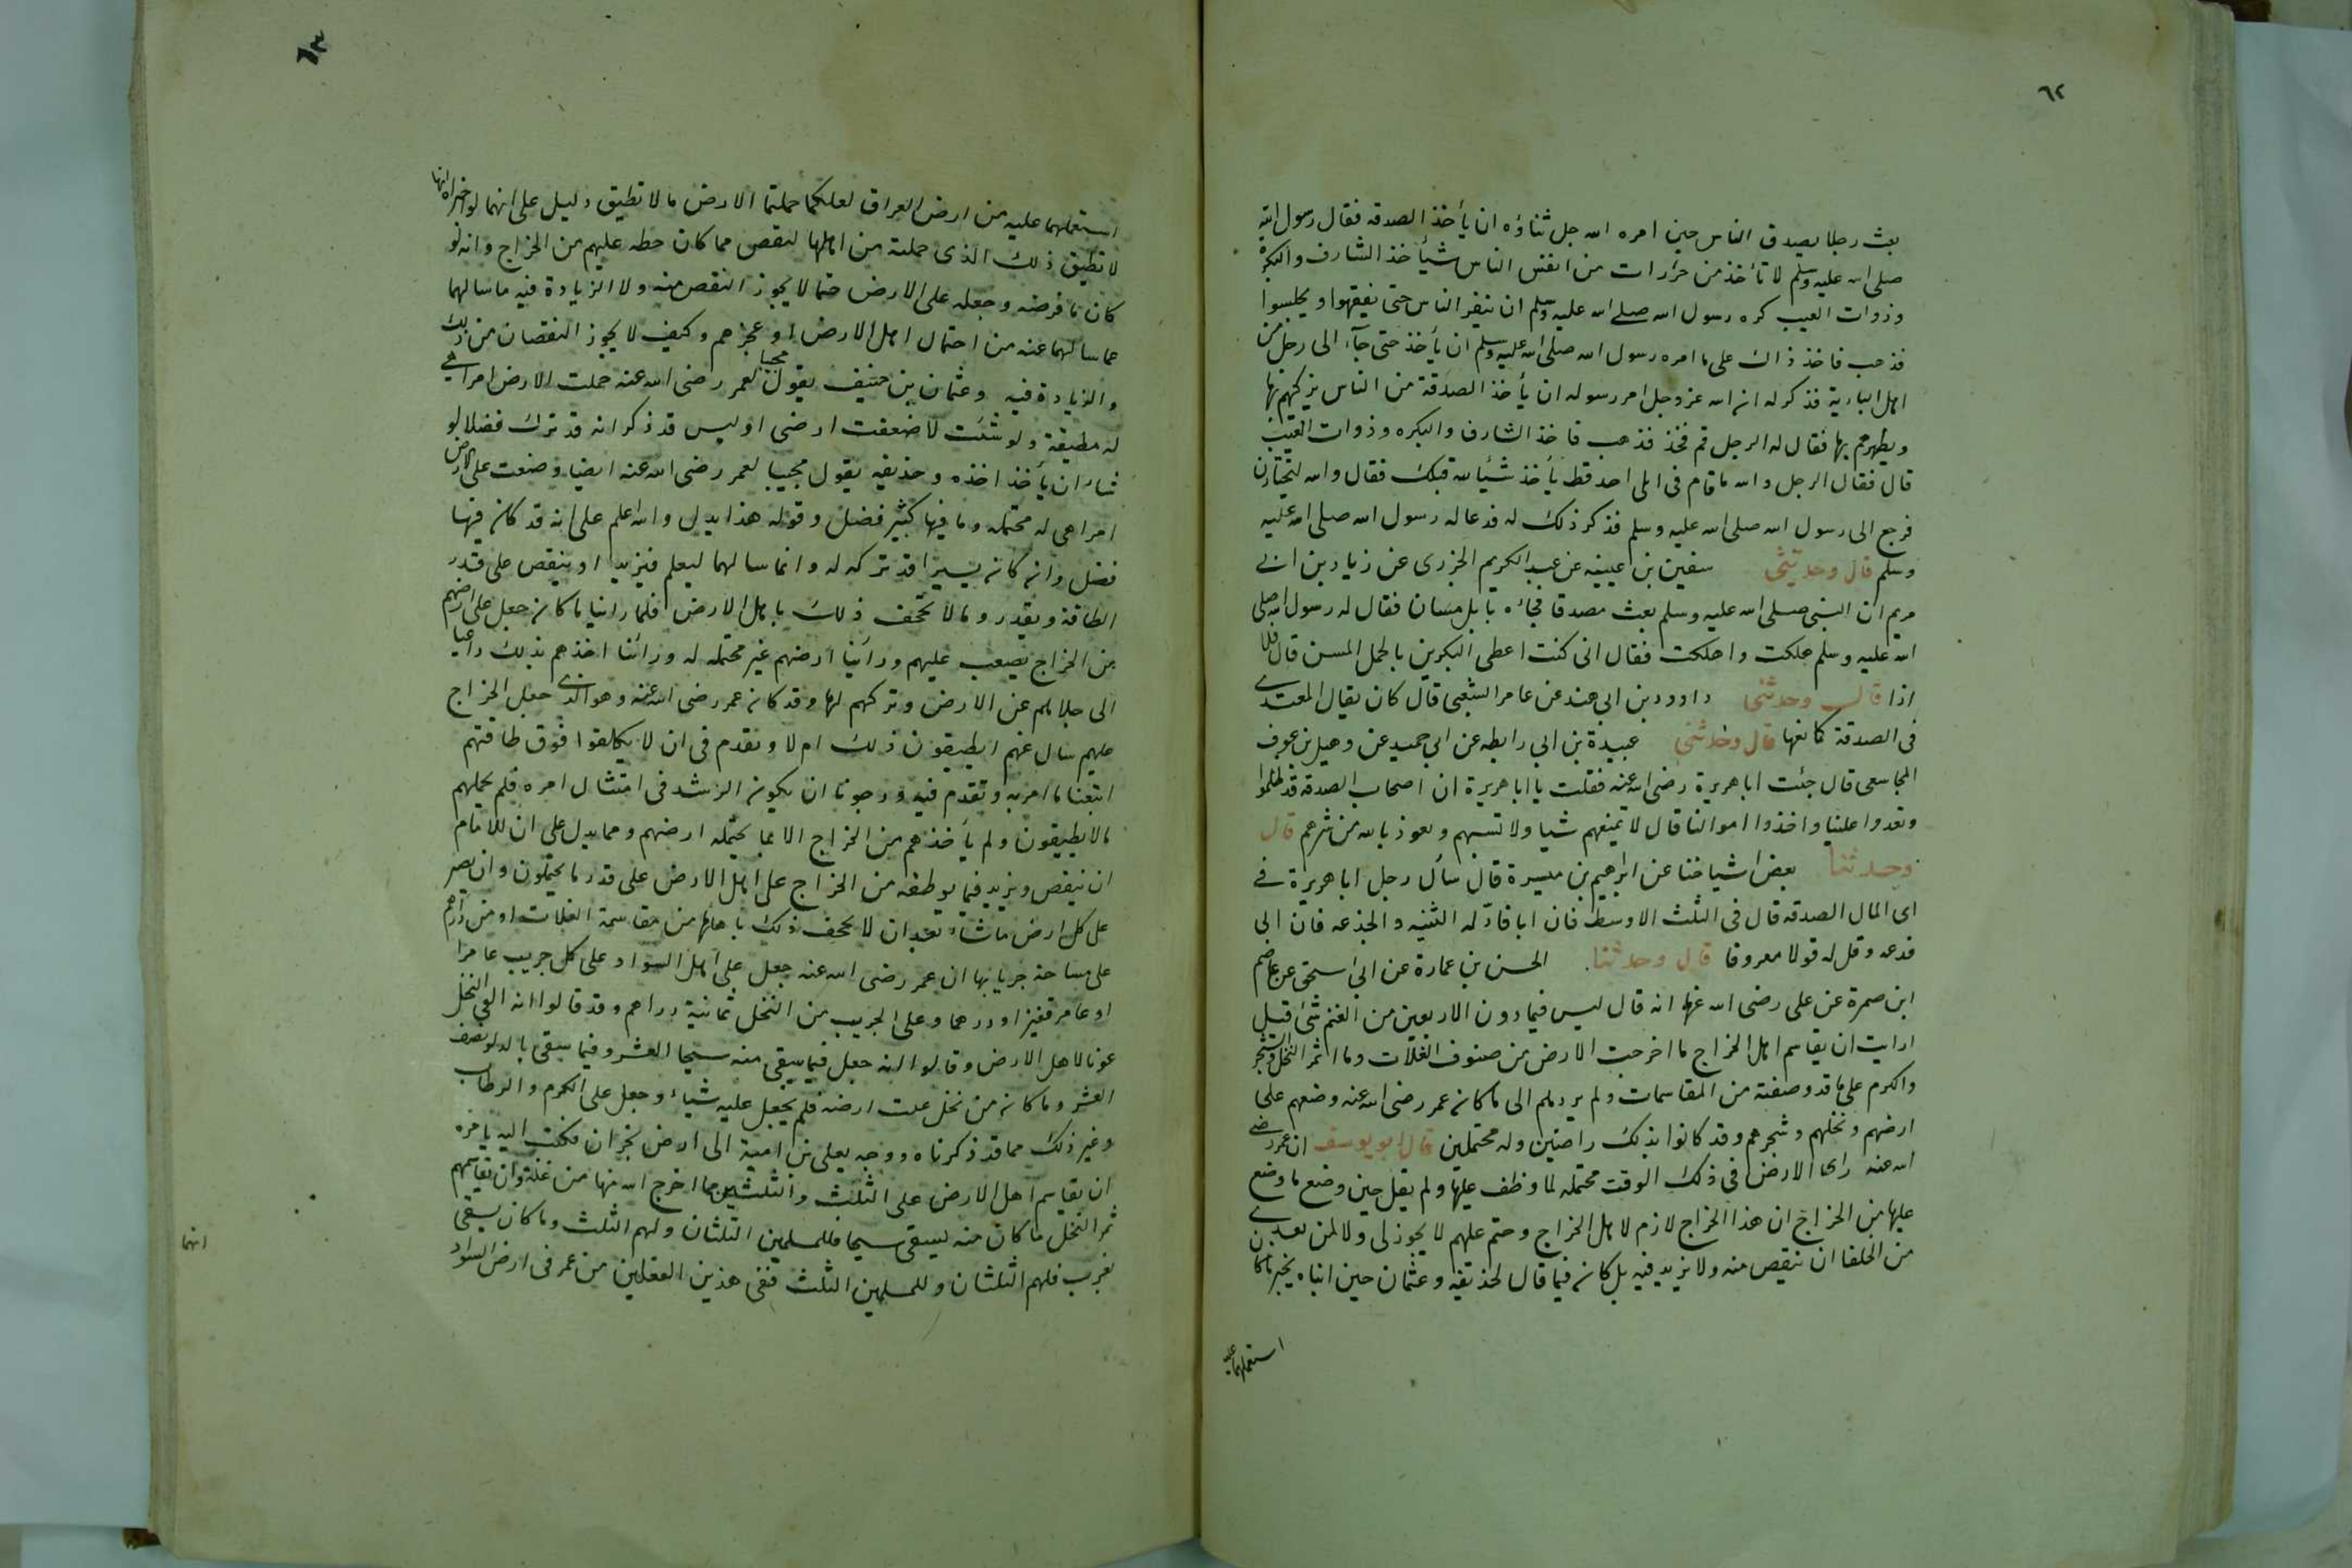 ٦٢
بعث رجلا يصدق الناس حين امره الله جل ثناؤه ان يأخذ الصدقه فقال رسول الله
صلى الله عليه وسلم لا تأخذ من حزرات من انفس الناس شيأ خذ الشارف والبكرة
وذوات العيب كره رسول الله صلى الله عليه وسلم ان ينفر الناس حتى يفقهوا ويحلبسوا
فذهب فاخذ ذاك على ما امره رسول الله صلى الله عليه وسلم ان يأخذ حتى جآء الى رجل من
اهل البادية فذكر له ان الله عز وجل امر رسوله ان يأخذ الصدقة من الناس يزكيهم بها
ويطهرهم بها فقال له الرجل قم فخذ فذهب فاخذ الشارف والبكره وذوات العيب
قال فقال الرجل والله ما قام فى ابلى احد قط يأخذ شيأ لله قبلك فقال والله لتختارن
فرجع الى رسول الله صلى الله عليه وسلم فذكر ذلك له فدعا له رسول الله صلى الله عليه
وسلم قال وحدثنى سفين بن عيينه عن عبد الكريم الجزرى عن زياد بن ابى
مريم ان النبى صلى الله عليه وسلم بعث مصدقا فجاءه بابل مسان فقال له رسول الله صلى
الله عليه وسلم هلكت واهلكت فقال انى كنت اعطى البكرين بالجمل المسن قال فلا
اذا قال وحدثنى داوود بن ابى هند عن عامر الشعبى قال كان يقال المعتدى
فى الصدقة كمانعها قال وحدثنى عبيدة بن ابى رابطه عن ابى حميد عن وهيل بن عوف
المجاشعى قال جئت ابا هريرة رضى الله عنه فقلت يا ابا هريرة ان اصحاب الصدقه قد ظلموا
وتعدوا علينا واخذوا اموالنا قال لا تمنعهم شيا ولا تسبهم وتعوذ بالله من شرهم قال
وحدثنا بعض اشياخنا عن ابراهيم بن ميسرة قال سأل رجل ابا هريرة فى
اى المال الصدقه قال فى الثلث الاوسط فان ابا فادّ له الثنيه والجذعه فان ابى
فدعه وقل له قولا معروفا قال وحدثنا الحسن بن عمارة عن ابى اسحق عن عاصم
ابن ضمرة عن على رضى الله عنه انه قال ليس فيما دون الاربعين من الغنم شئ قيل
ارايت ان يقاسم اهل الخراج ما اخرجت الارض من صنوف الغلات وما اثمر النخل والشجر
والكرم على ما قد وصفته من المقاسمات ولم يردهم الى ما كان عمر رضى الله عنه وضعهم على
ارضهم ونخلهم وشجرهم وقد كانوا بذلك راضين وله محتملين قال ابو يوسف ان عمر رضى
الله عنه راى الارض فى ذلك الوقت محتمله لما وظف عليها ولم يقل حين وضع ما وضع
عليها من الخراج ان هذا الخراج لازم لاهل الخراج وحتم عليهم لا يجوز لى ولا لمن بعدى
من الخلفا ان ينقص منه ولا يزيد فيه بل كان فيما قال لحذيفه وعثمان حين اتياه بخبر ما كان
استعملهما عليه
٦٣
استعملهما عليه من ارض العراق لعلكما حملتما الارض ما لا تطيق دليل على انهما لو اخبراه انها
لا تطيق ذلك الذى حملته من اهلها لنقص مما كان حطه عليهم من الخراج وانه لو
كان ما فرضه وجعله على الارض حتما لا يجوز النقص منه ولا الزيادة فيه ما سالهما
عما سالهما عنه من احتمال اهل الارض او عجزهم وكيف لا يجوز النقصان من ذلك
والزيادة فيه وعثمان بن حنيف يقول مجيبا لعمر رضى الله عنه حملت الارض امرا هى
له مطيقة ولو شئت لاضعفت ارضى اوليس قد ذكر انه قد ترك فضلا لو
شاء ان يأخذ اخذه وحذيفه يقول مجيبا لعمر رضى الله عنه ايضا وضعت على الارض
امرا هى له محتمله وما فيها كثير فضل وقوله هذا يدل والله اعلم على انه قد كان فيها
فضل وان كان يسيرا قد تركه له وانما سالهما ليعلم فيزيد او ينقص على قدر
الطاقة وبقدر وما لا تجحف ذلك باهل الارض فلما راينا ما كان جعل على ارضهم
من الخراج يصعب عليهم ورأينا ارضهم غير محتمله له ورأينا اخذهم بذلك داعيا
الى جلايهم عن الارض وتركهم لها وقد كان عمر رضى الله عنه وهو الذى جعل الخراج
عليهم سال عنهم ايطيقون ذلك ام لا وتقدم فى ان لا يكلفوا فوق طاقتهم
اتبعنا ما امر به وتقدم فيه ورجونا ان يكون الرشد فى امتثال امره فلم يحملهم
ما لا يطيقون ولم يأخذهم من الخراج الا بما يحتمله ارضهم ومما يدل على ان للامام
ان ينقص ويزيد فيما يوظفه من الخراج على اهل الارض على قدر ما يحتملون وان يصير
على كل ارض ما شاء بعد ان لا يجحف ذلك باهلها من مقاسمة الغلات او من دراهم
على مساحة جربانها ان عمر رضى الله عنه جعل على اهل السواد على كل جريب عامرا
او غامر قفيزا ودرهما وعلى الجريب من النخل ثمانية دراهم وقد قالوا انه الغى النخل
عونا لاهل الارض وقالوا انه جعل فيما سقى منه سيحا العشر وفيما سقى بالدلو نصف
العشر وما كان من نخل عملت ارضه فلم يجعل عليه شياء وجعل على الكرم والرطاب
وغير ذلك مما قد ذكرناه ووجه يعلى بن امية الى ارض نجران فكتب اليه يامره
ان يقاسم اهل الارض على الثلث والثلثين مما اخرج الله منها من غلة وان يقاسمهم
ثمر النخل ما كان منه يسقى سيحا فللمسلمين الثلثان ولهم الثلث وما كان يسقى
بغرب فلهم الثلثان وللمسلمين الثلث ففى هذين الفعلين من عمر فى ارض السواد
انهما